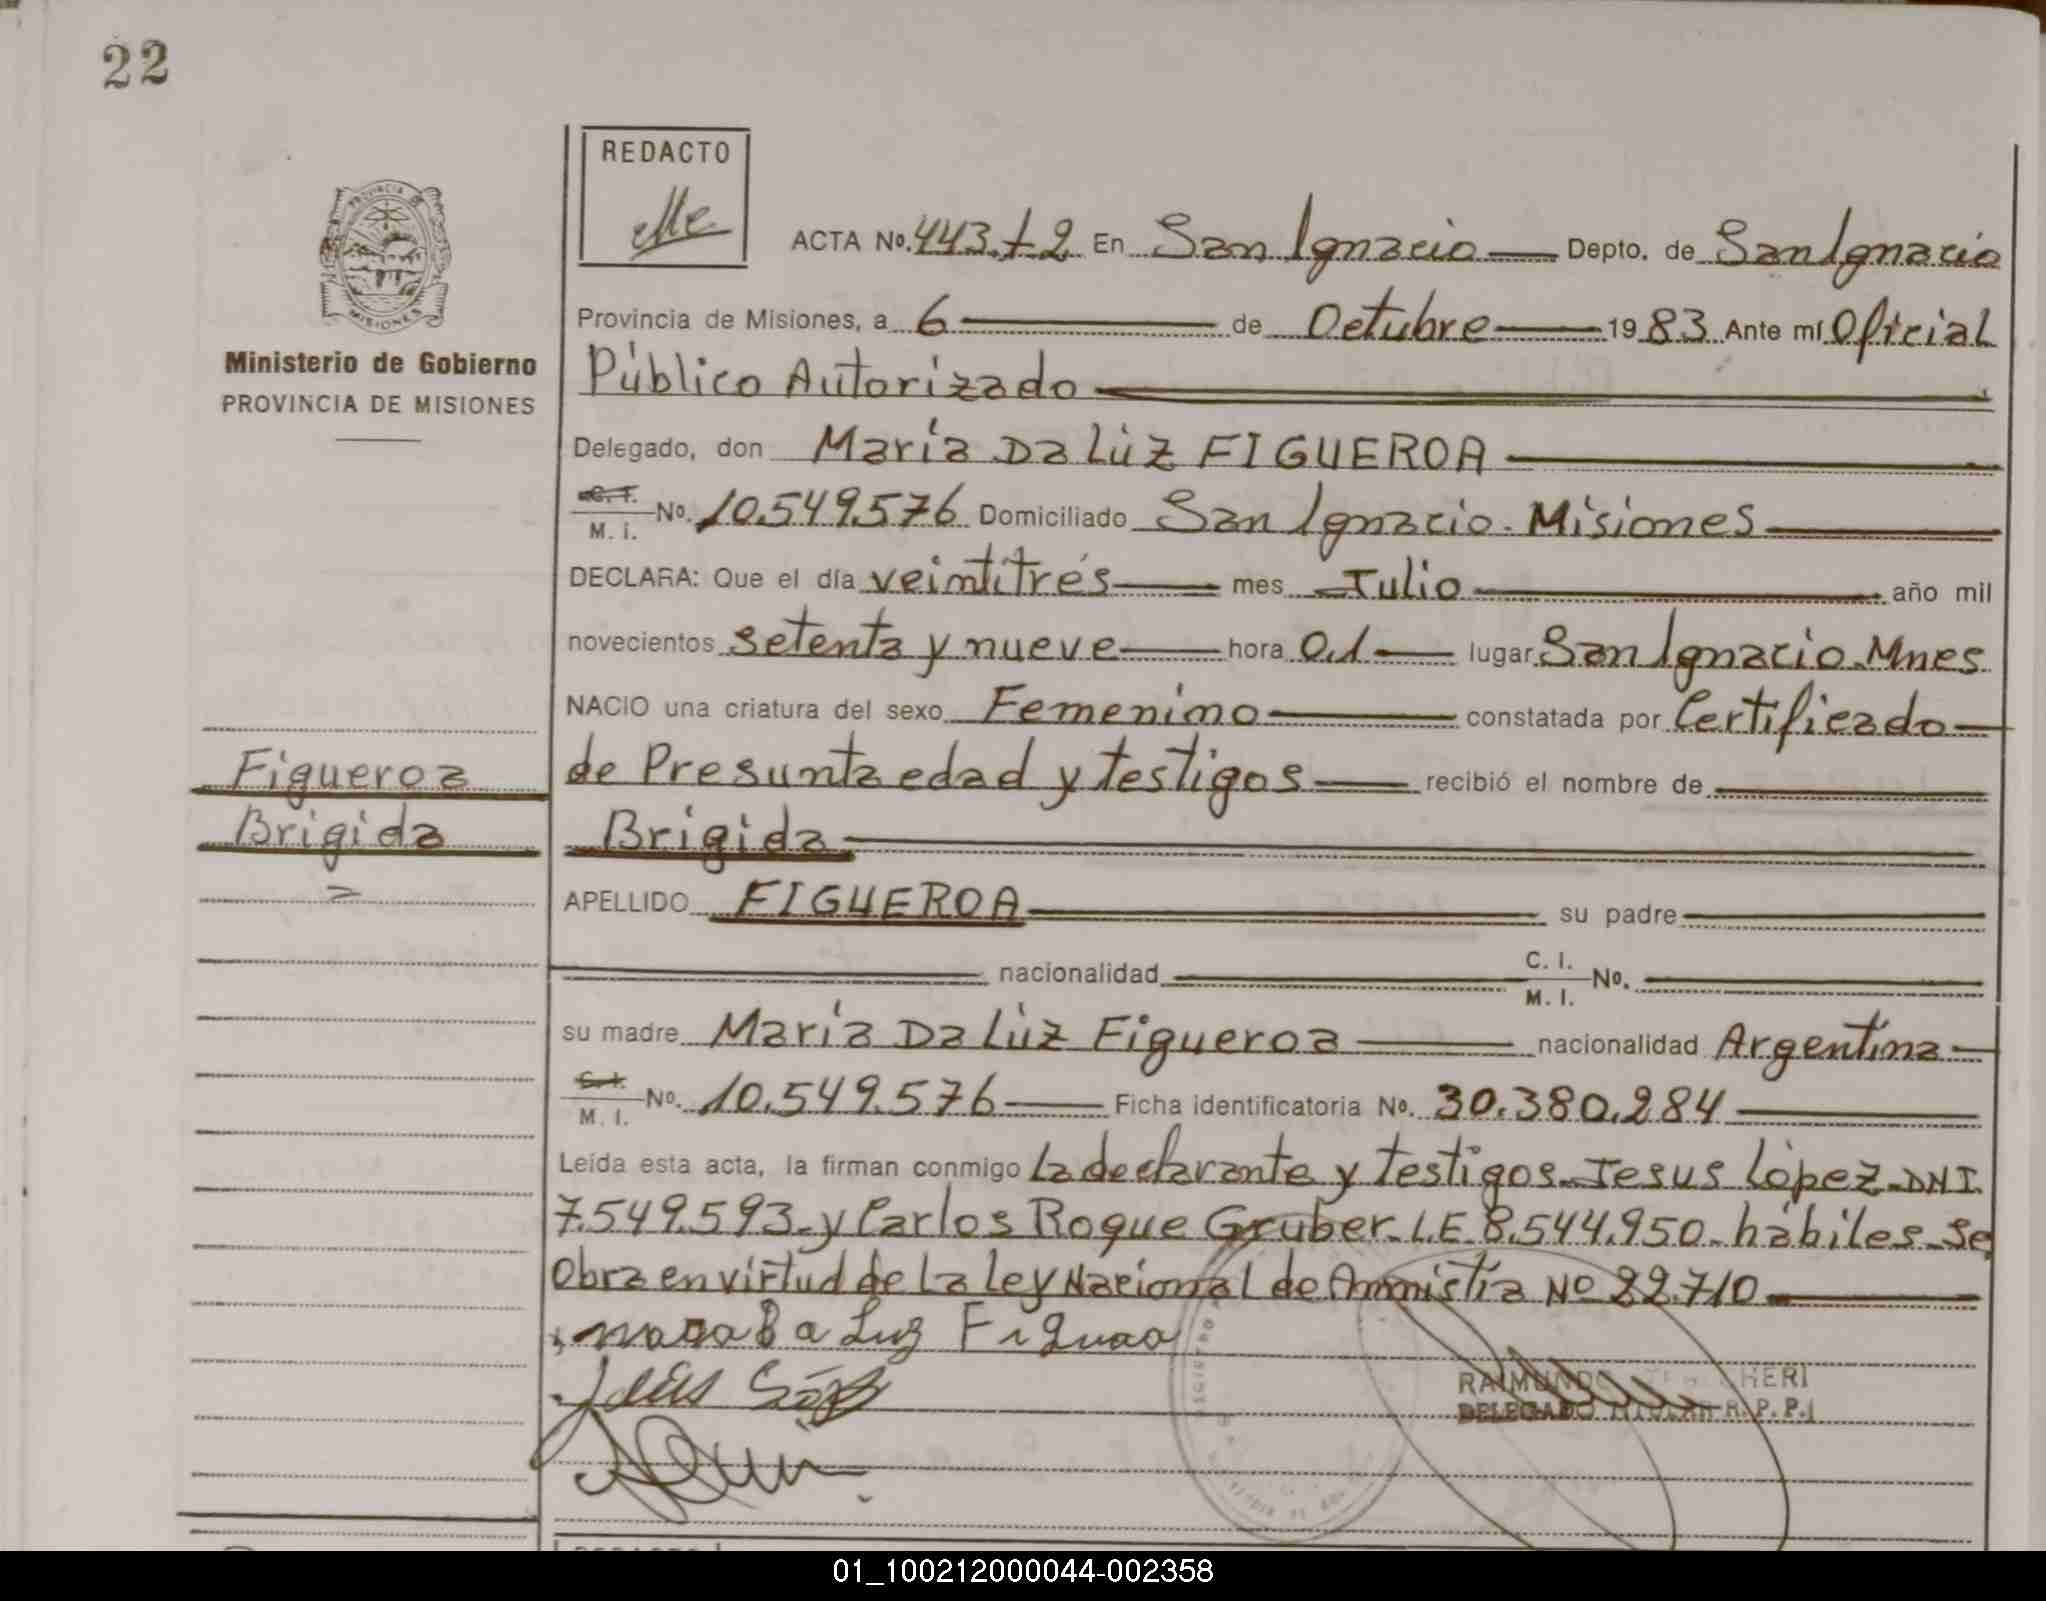 22
REDACTO
PROVINCIA DE
MISIONES
Ministerio de Gobierno
PROVINCIA DE MISIONES
ACTA No. 443. t 2 En San Ignacio Depto. de San Ignacio
Provincia de Misiones, a 6 de Octubre 1983 Ante mí Oficial
Público Autorizado
Delegado, don María Da Lùz FIGUEROA
C. I. M. I. No. 10.549.576 Domiciliado San Ignacio. Misiones
DECLARA: Que el día veintitrés mes Julio año mil
novecientos setenta y nueve hora 0.1 lugar San Ignacio. Mnes
NACIO una criatura del sexo Femenino constatada por Certificado
de Presunta edad y testigos recibió el nombre de
Brigida
Figueroa
Brigida
APELLIDO FIGUEROA su padre
nacionalidad C. I. M. I. No.
su madre María Da Lùz Figueroa nacionalidad Argentina
C. I. M. I. No. 10.549.576 Ficha identificatoria No. 30.380.284
Leída esta acta, la firman conmigo La declarante y testigos. Jesus Lòpez. DNI
7.549.593. y Carlos Roque Gruber. L.E. 8.544.950. hábiles. Se
Obra en virtud de La Ley Nacional de Amnistía No 22.710
Luz
RAIMUNDO HERI
DELEGADO TITULAR R.P.P.
01_100212000044-002358